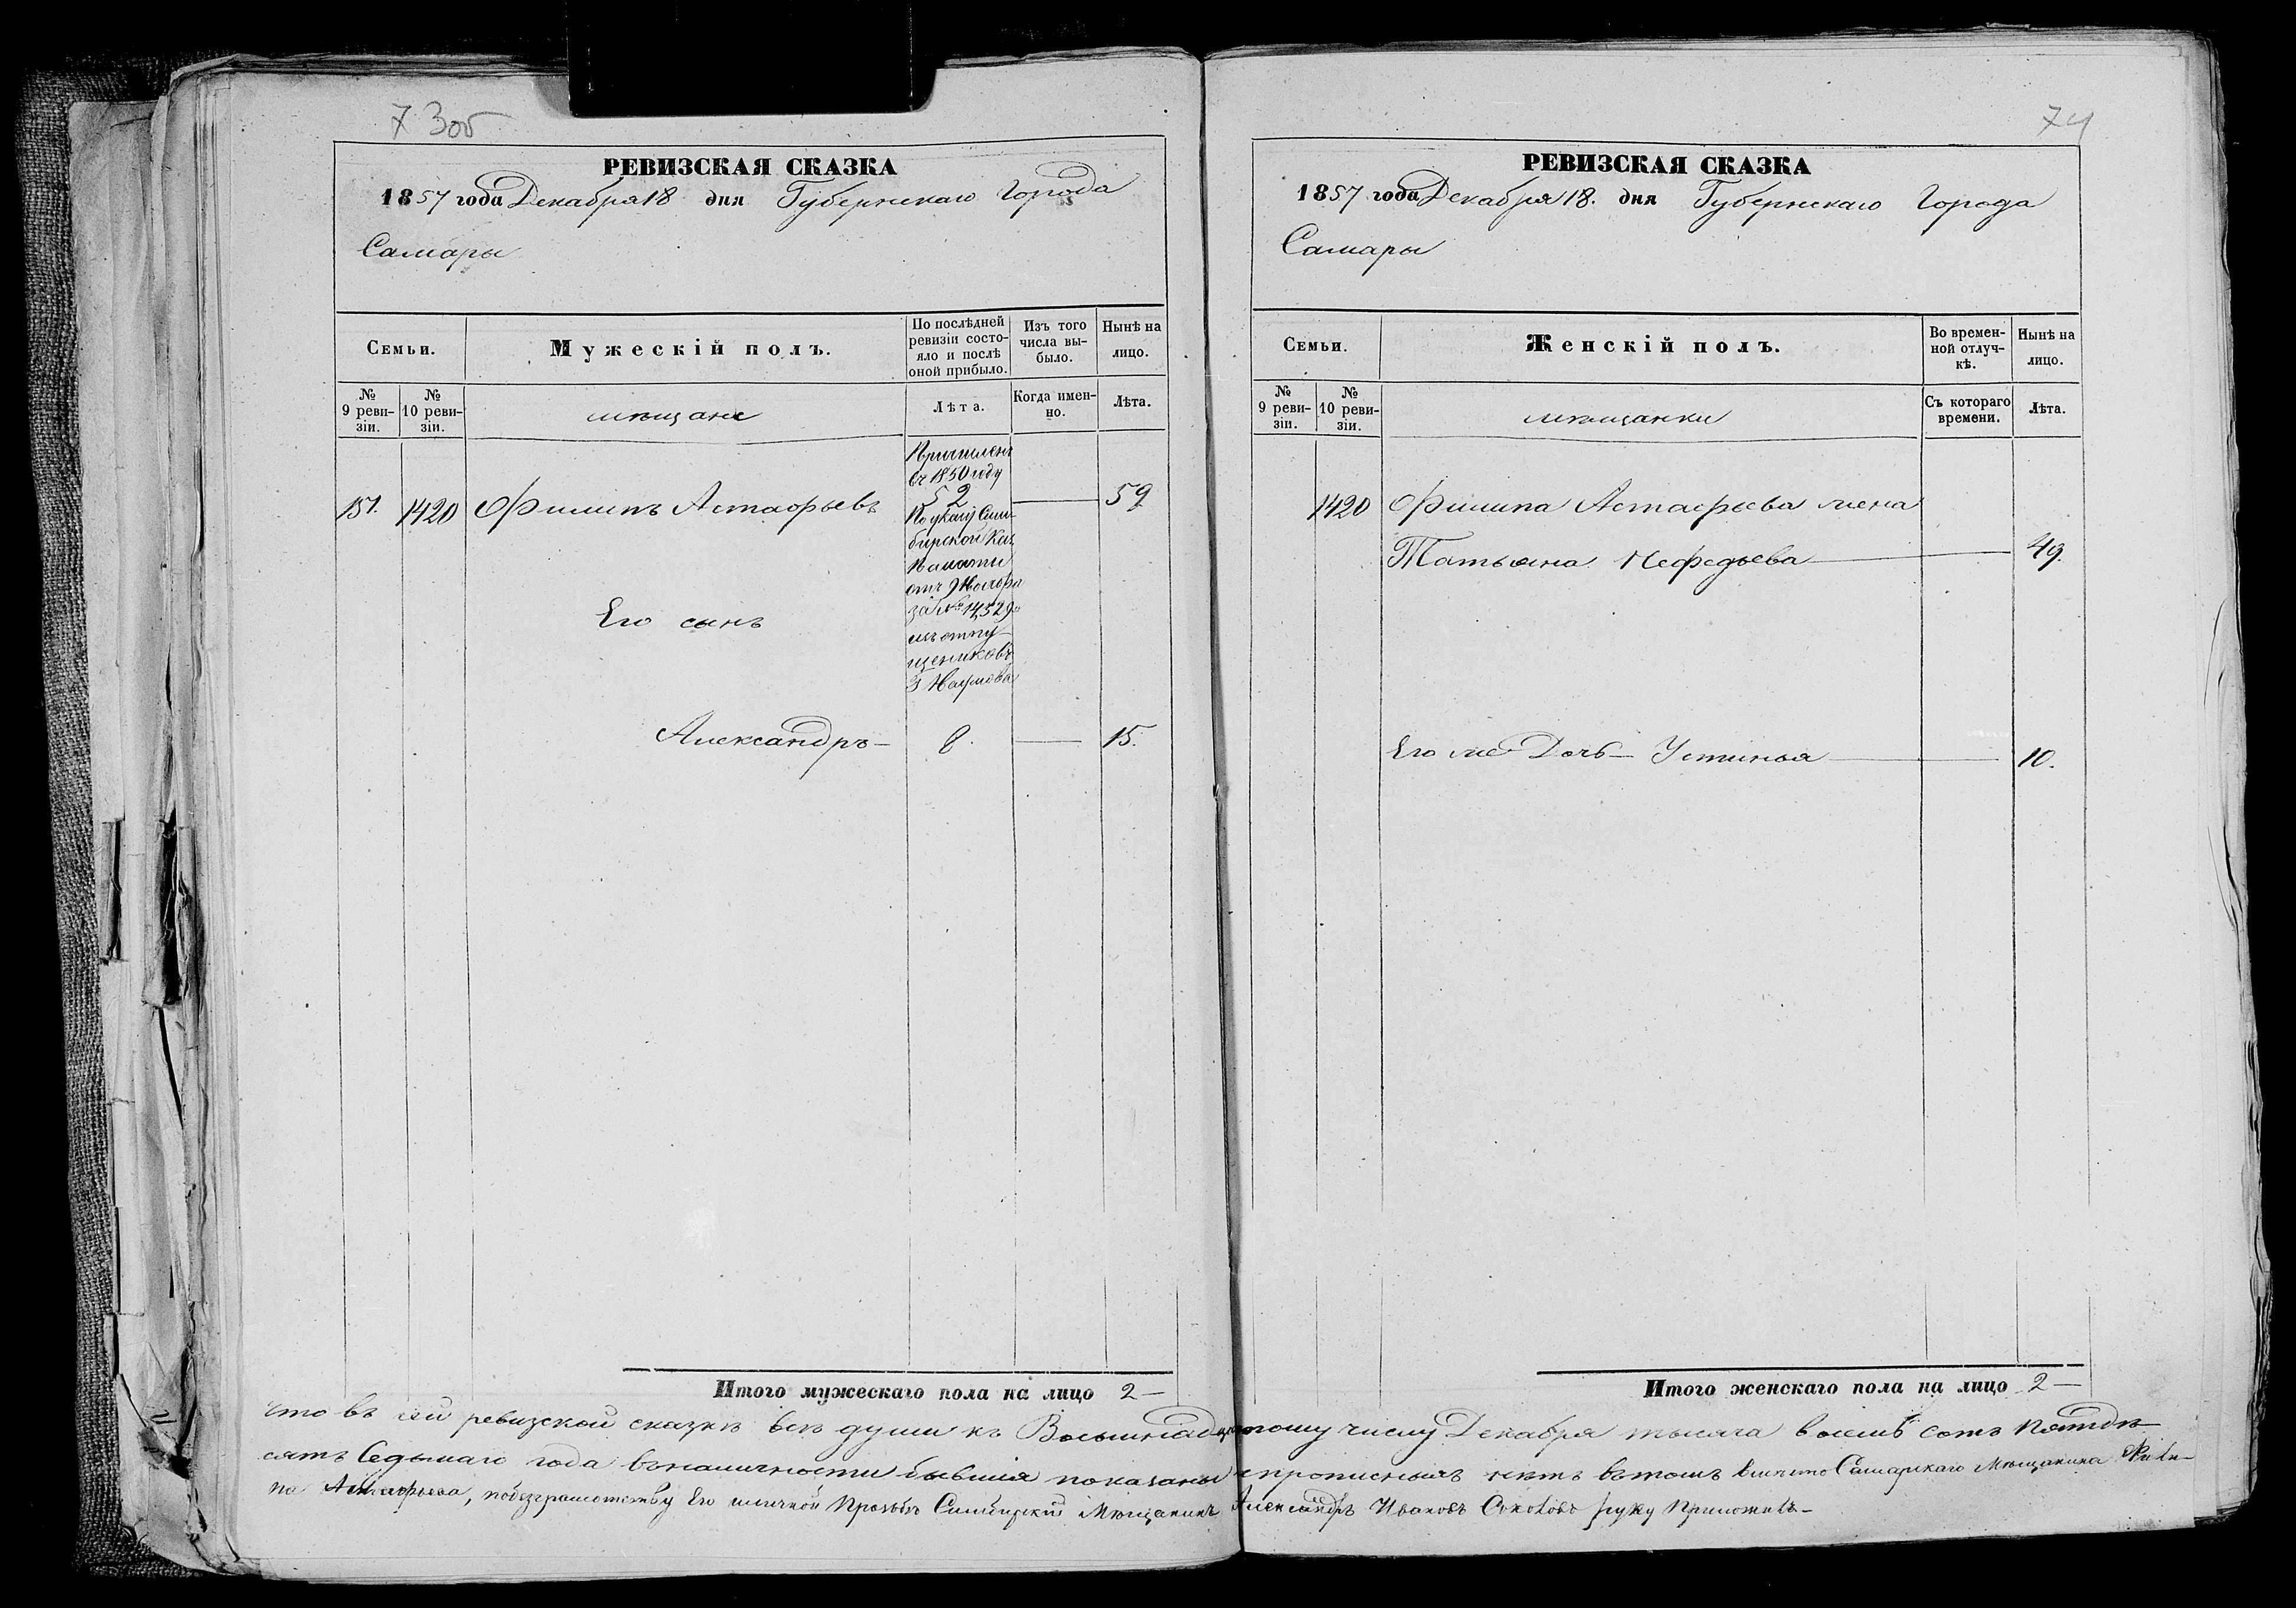 73об
РЕВИЗСКАЯ СКАЗКА
1857 года Декабря 18 дня Губернскаго Города
Самары
Семьи.
Мужескій полъ.
По послѣдней ревизіи состояло и послѣ оной прибыло.
Изъ того числа выбыло.
Нынѣ на лицо.
№ 9 ревизіи.
№ 10 ревизіи.
мѣщане
Лѣта.
Когда именно.
Лѣта.
Причисленъ
въ 1850 году
151. 1420 Филипъ Астафьевъ 52 — 59
По указу Сим-
бирской Каз.
Палаты
отъ 9 Ноября
за № 14,529
изъ отпу-
щениковъ
Г Наумова
Его сынъ
Александръ — 8. — 15.
Итого мужескаго пола на лицо 2 —
74
РЕВИЗСКАЯ СКАЗКА
1857 года Декабря 18. дня Губернскаго Города
Самары
Семьи.
Женскій полъ.
Во временной отлучкѣ.
Нынѣ на лицо.
№ 9 ревизіи.
№ 10 ревизіи.
мѣщанки
Съ котораго времени.
Лѣта.
1420 Филипа Астафьева жена
Татьяна Нефедьева — 49.
Его же Дочь — Устинья — 10.
Итого женскаго пола на лицо 2 —
что въ сей ревизской сказкѣ всѣ души къ Восьмнадцатому числу Декабря тысяча восемь сотъ Пятьде-
сятъ Седьмаго года въ наличности бывшія показаны и прописныхъ нѣтъ въ томъ Самарскаго Мѣщанина Фили-
па Астафьева, по безграмотству Его и личной Прозьбѣ Симбирскій Мѣщанинъ Александръ Ивановъ Соколовъ руку Приложилъ —